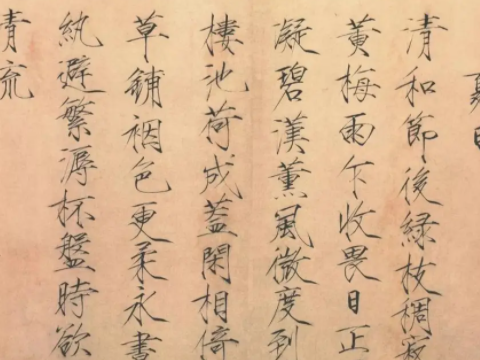 夏日
清和節後綠枝稠寂
黃梅雨乍收畏日正
凝碧漢薰風微度到
樓池荷成蓋閑相倚
草鋪裀色更柔永晝
紈避繁溽杯盤時欲
清流